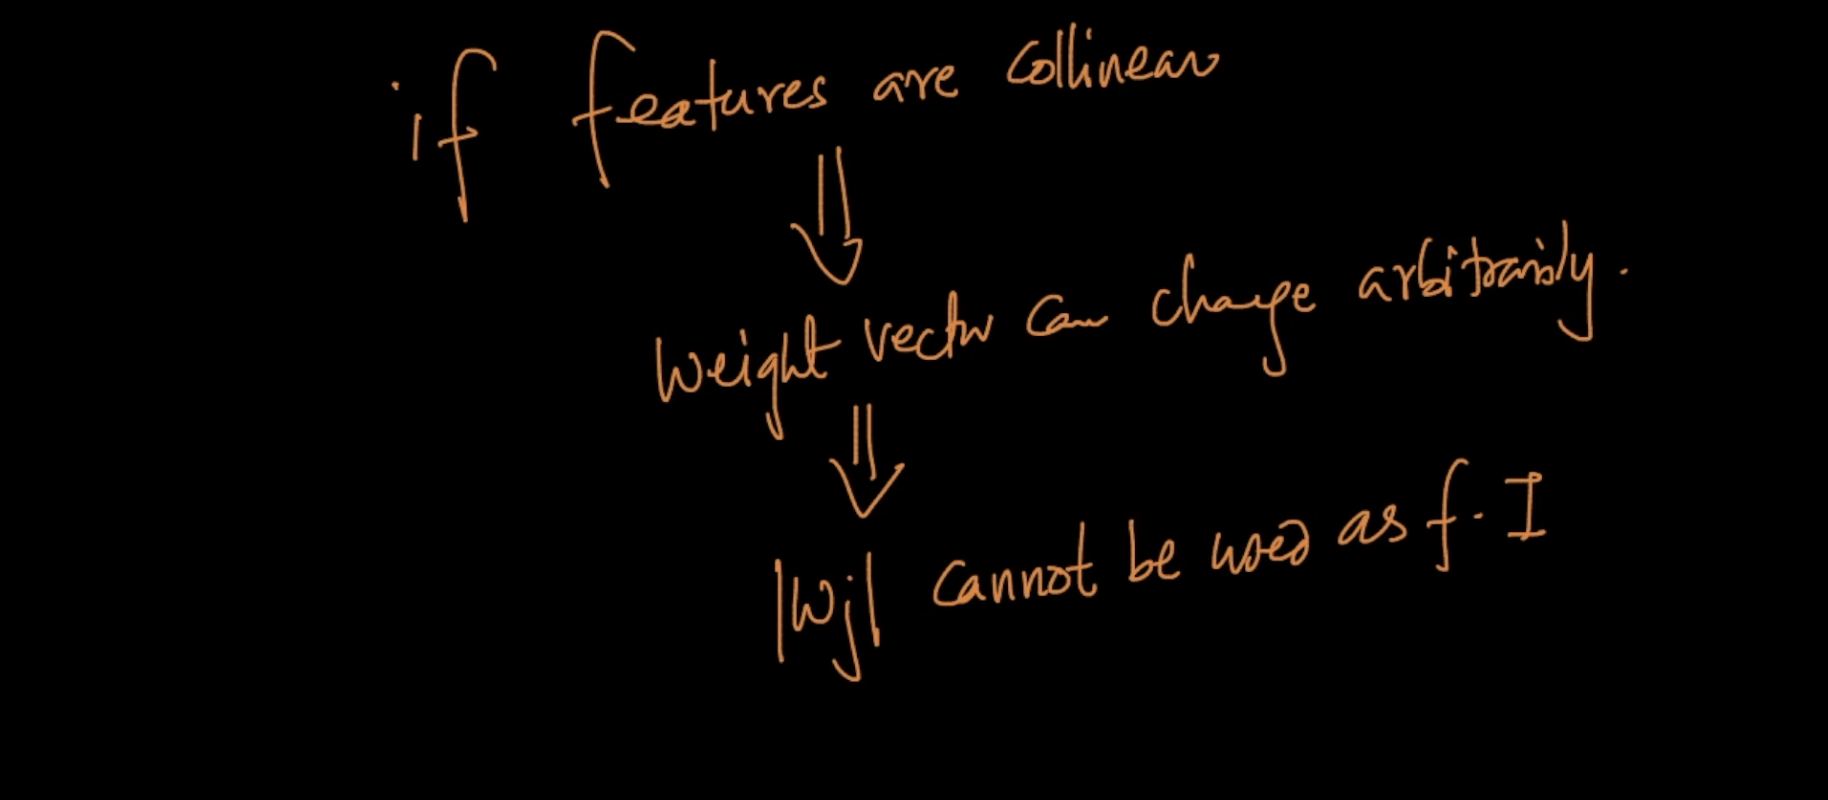 if features are collinear
weight vector can change arbitrarily.
|wj| cannot be used as f.I